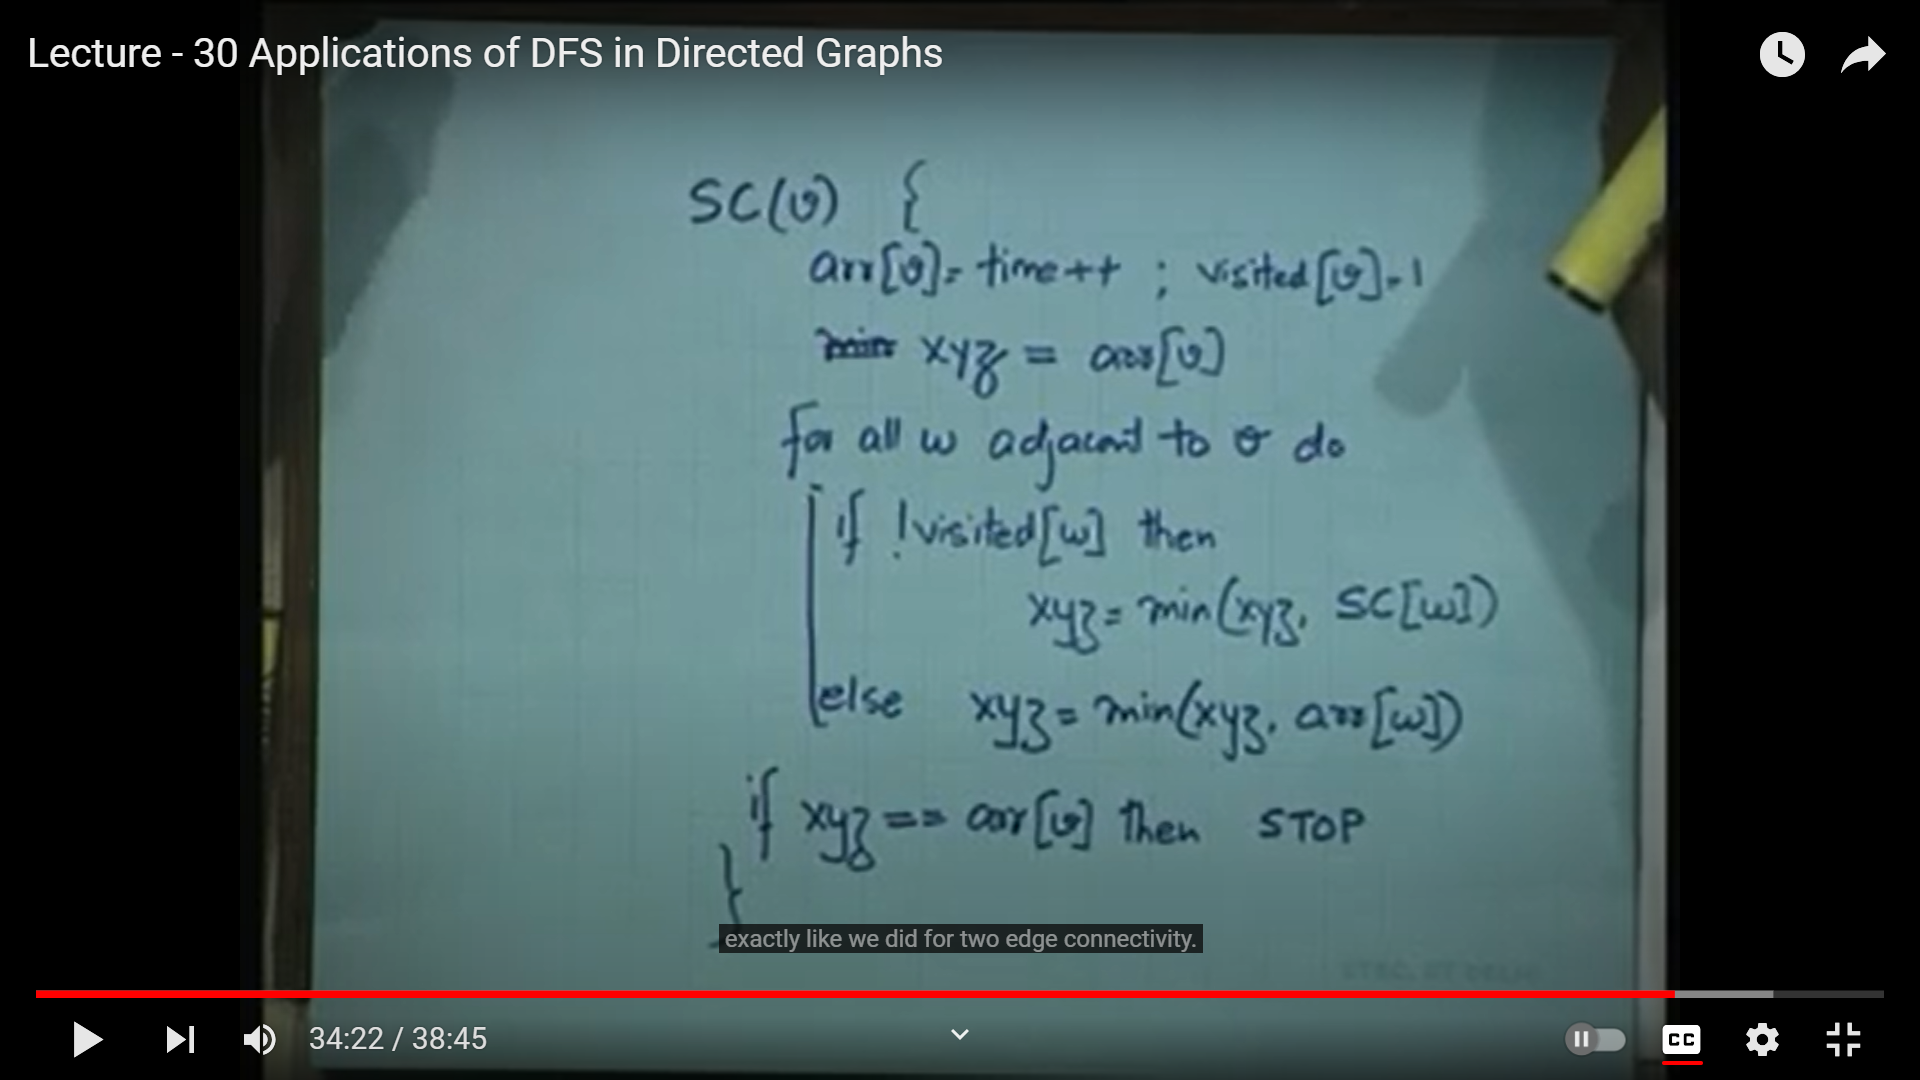 Lecture - 30 Applications of DFS in Directed Graphs
SC(v) {
arr[v]= time++ ; visited[v]=1
xyz = arr[v]
for all w adjacent to v do
if !visited[w] then
xyz= min(xyz, SC[w])
else xyz= min(xyz, arr[w])
if xyz == arr[v] then STOP
}
exactly like we did for two edge connectivity.
34:22 / 38:45
CC